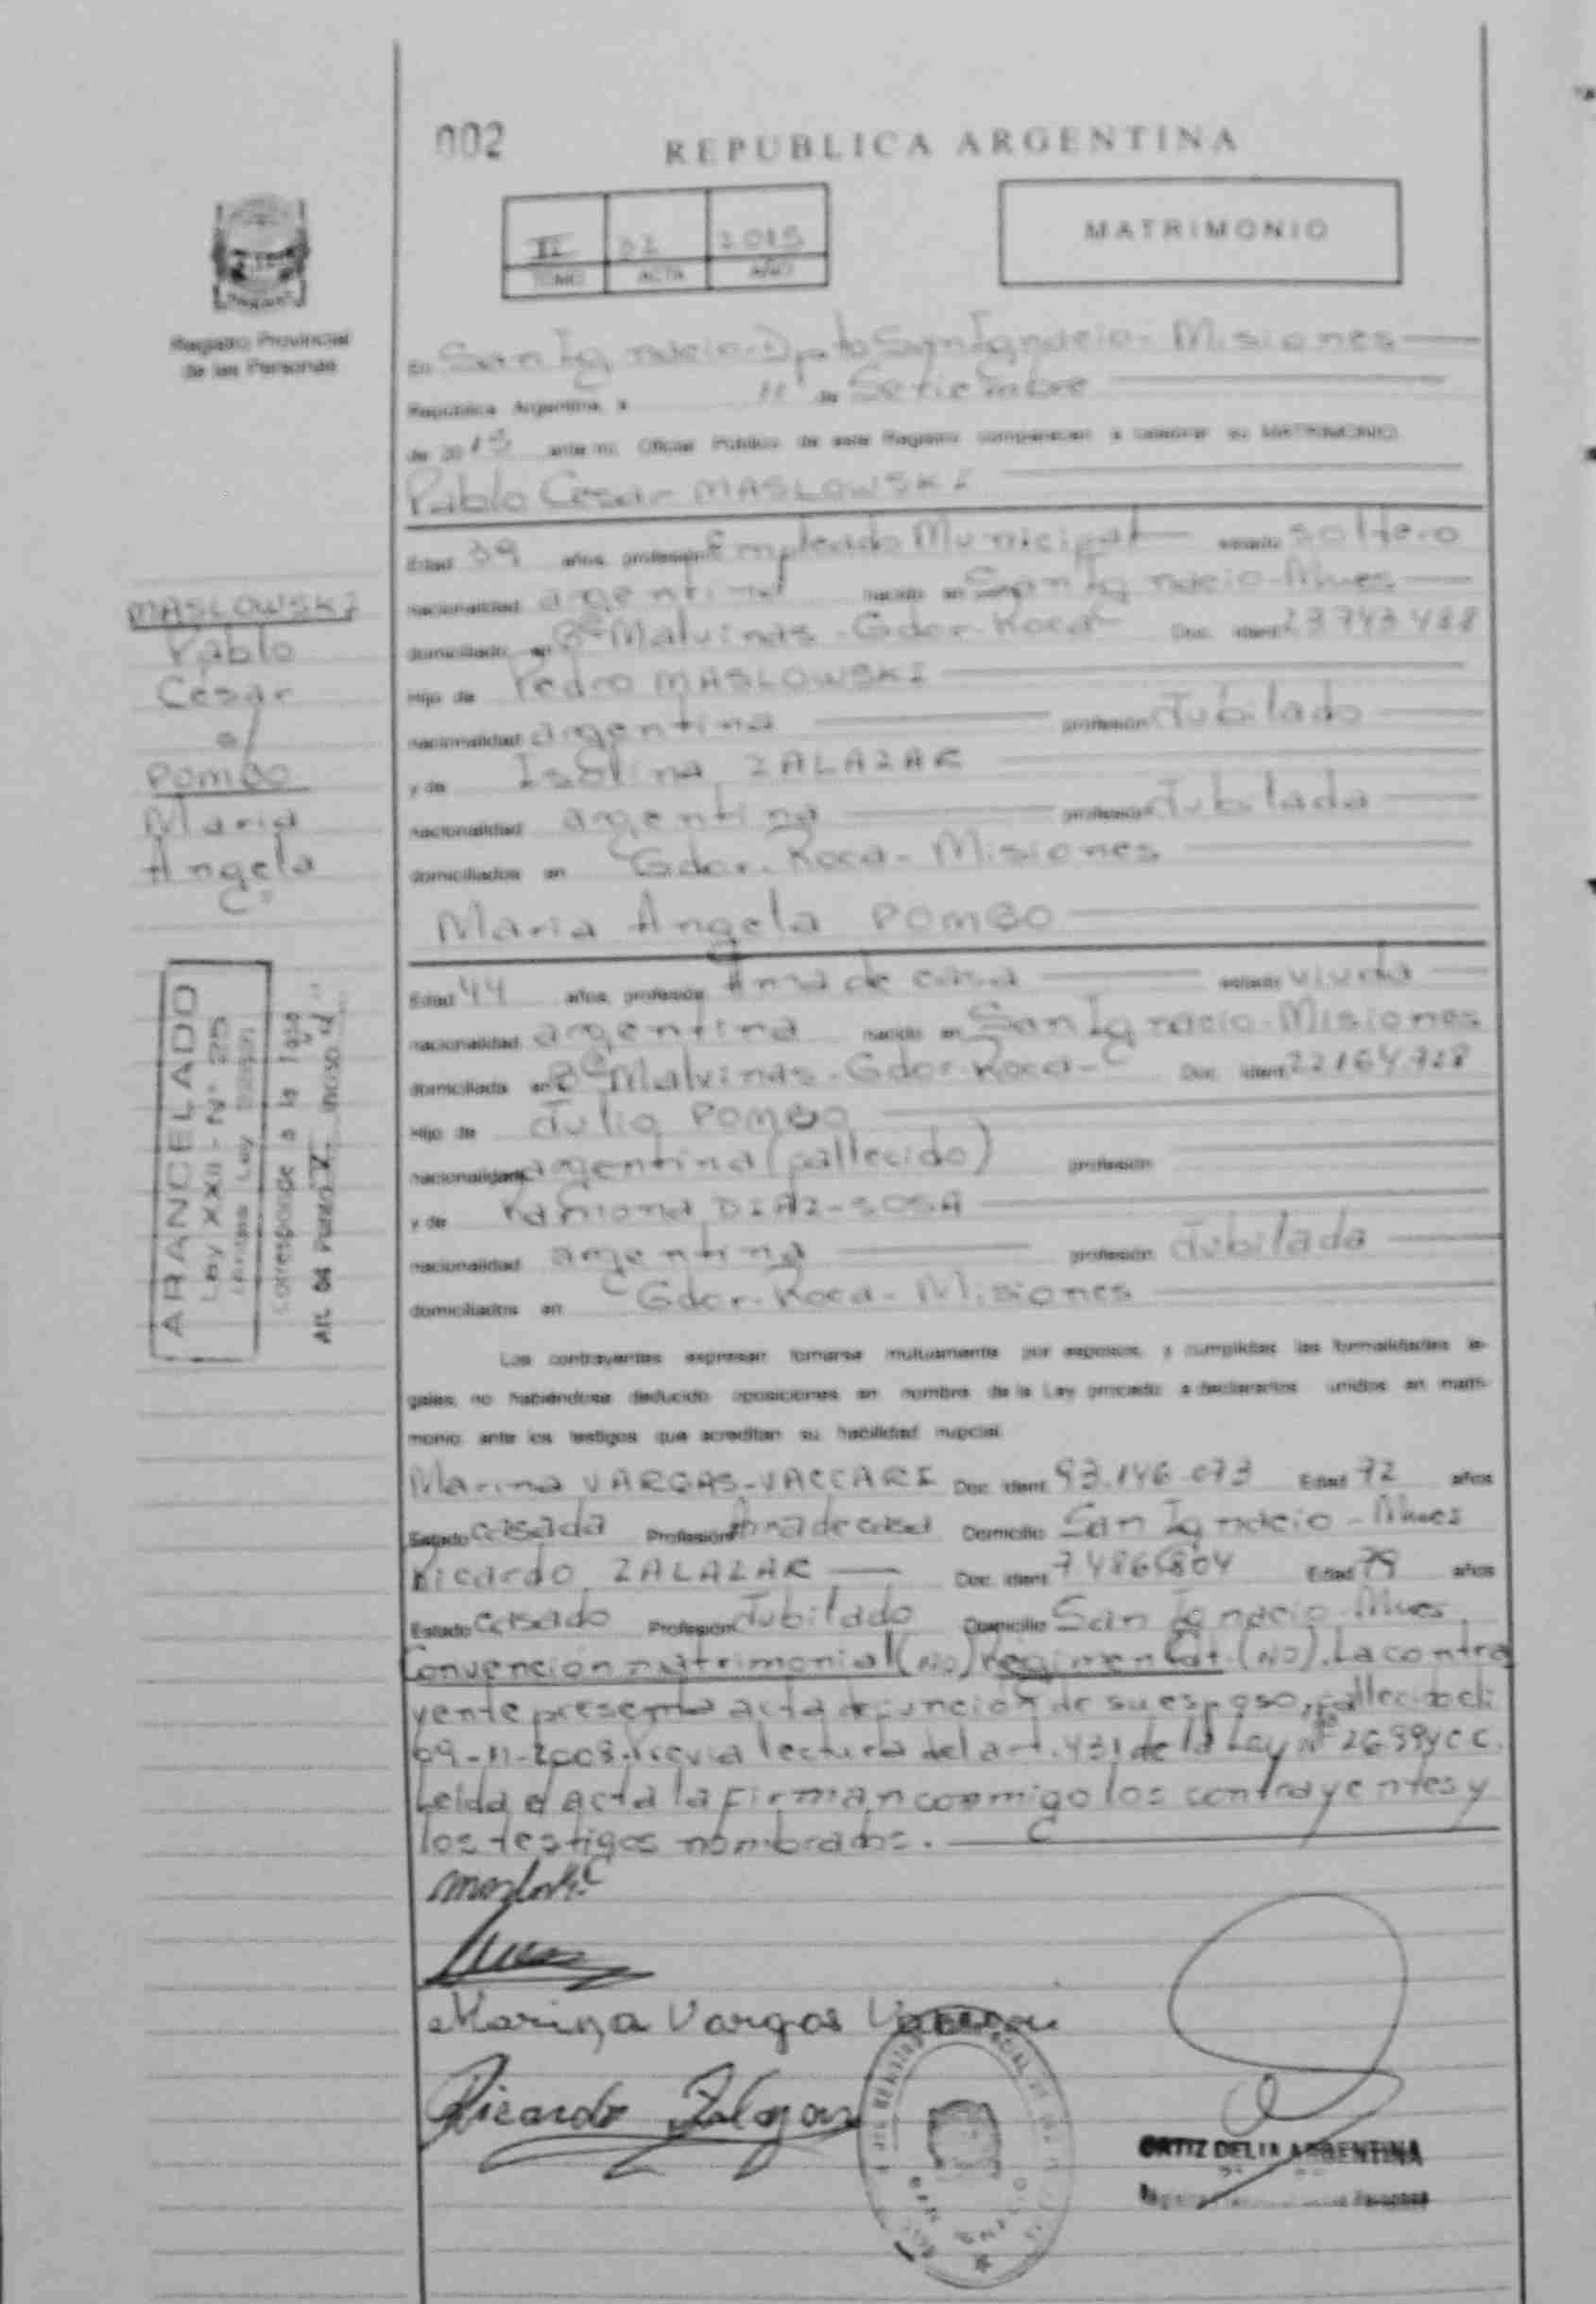 002
REPUBLICA ARGENTINA
II 02 2015
TOMO ACTA AÑO
MATRIMONIO
Registro Provincial
de las Personas
En San Ignacio-Dpto San Ignacio- Misiones
República Argentina, a 11 de Setiembre
de 2015 ante mi, Oficial Público de este Registro comparecen a celebrar su MATRIMONIO
Pablo Cesar MASLOWSKI
Edad 39 años, profesión Empleado Municipal estado soltero
nacionalidad argentina nacido en San Ignacio-Mnes
domiciliado en Bº Malvinas-Gdor-Roca Doc. Ident. 23743488
Hijo de Pedro MASLOWSKI
nacionalidad argentina profesión Jubilado
y de Isolina ZALAZAR
nacionalidad argentina profesión Jubilada
domiciliados en Gdor-Roca-Misiones
Maria Angela POMBO
Edad 44 años, profesión Ama de casa estado viuda
nacionalidad argentina nacido en San Ignacio-Misiones
domiciliada en Bº Malvinas-Gdor-Roca- Doc. Ident. 22164728
Hijo de Julio POMBO
nacionalidad argentina (fallecido) profesión
y de Ramona DIAZ-SOSA
nacionalidad argentina profesión Jubilada
domiciliados en Gdor-Roca-Misiones
MASLOWSKI
Pablo
Cesar
c/
POMBO
Maria
Angela
ARANCELADO
Ley XXII - Nº 25
Corresponde a la Ley
Art. 04 Punto V Inciso d
Los contrayentes expresan tomarse mutuamente por esposos, y cumplidas las formalidades le-
gales, no habiéndose deducido oposiciones en nombre de la Ley procedo a declararlos unidos en matri-
monio ante los testigos que acreditan su habilidad nupcial.
Marina VARGAS-VACCARI Doc. Ident. 93.146.073 Edad 72 años
Estado casada Profesión Ama de casa Domicilio San Ignacio-Mnes
Ricardo ZALAZAR Doc. Ident. 7486804 Edad 79 años
Estado casado Profesión Jubilado Domicilio San Ignacio-Mnes
Convención matrimonial (NO) Regimen Pat. (NO). La contra
yente presenta acta defunción de su esposo, fallecido el:
09-11-2008. Previa lectura del art. 431 de la Ley Nº 26.994 C C.
Leida el acta la firman conmigo los contrayentes y
los testigos nombrados.
Marina Vargas Vaccari
Ricardo Zalazar
ORTIZ DELIA ARGENTINA